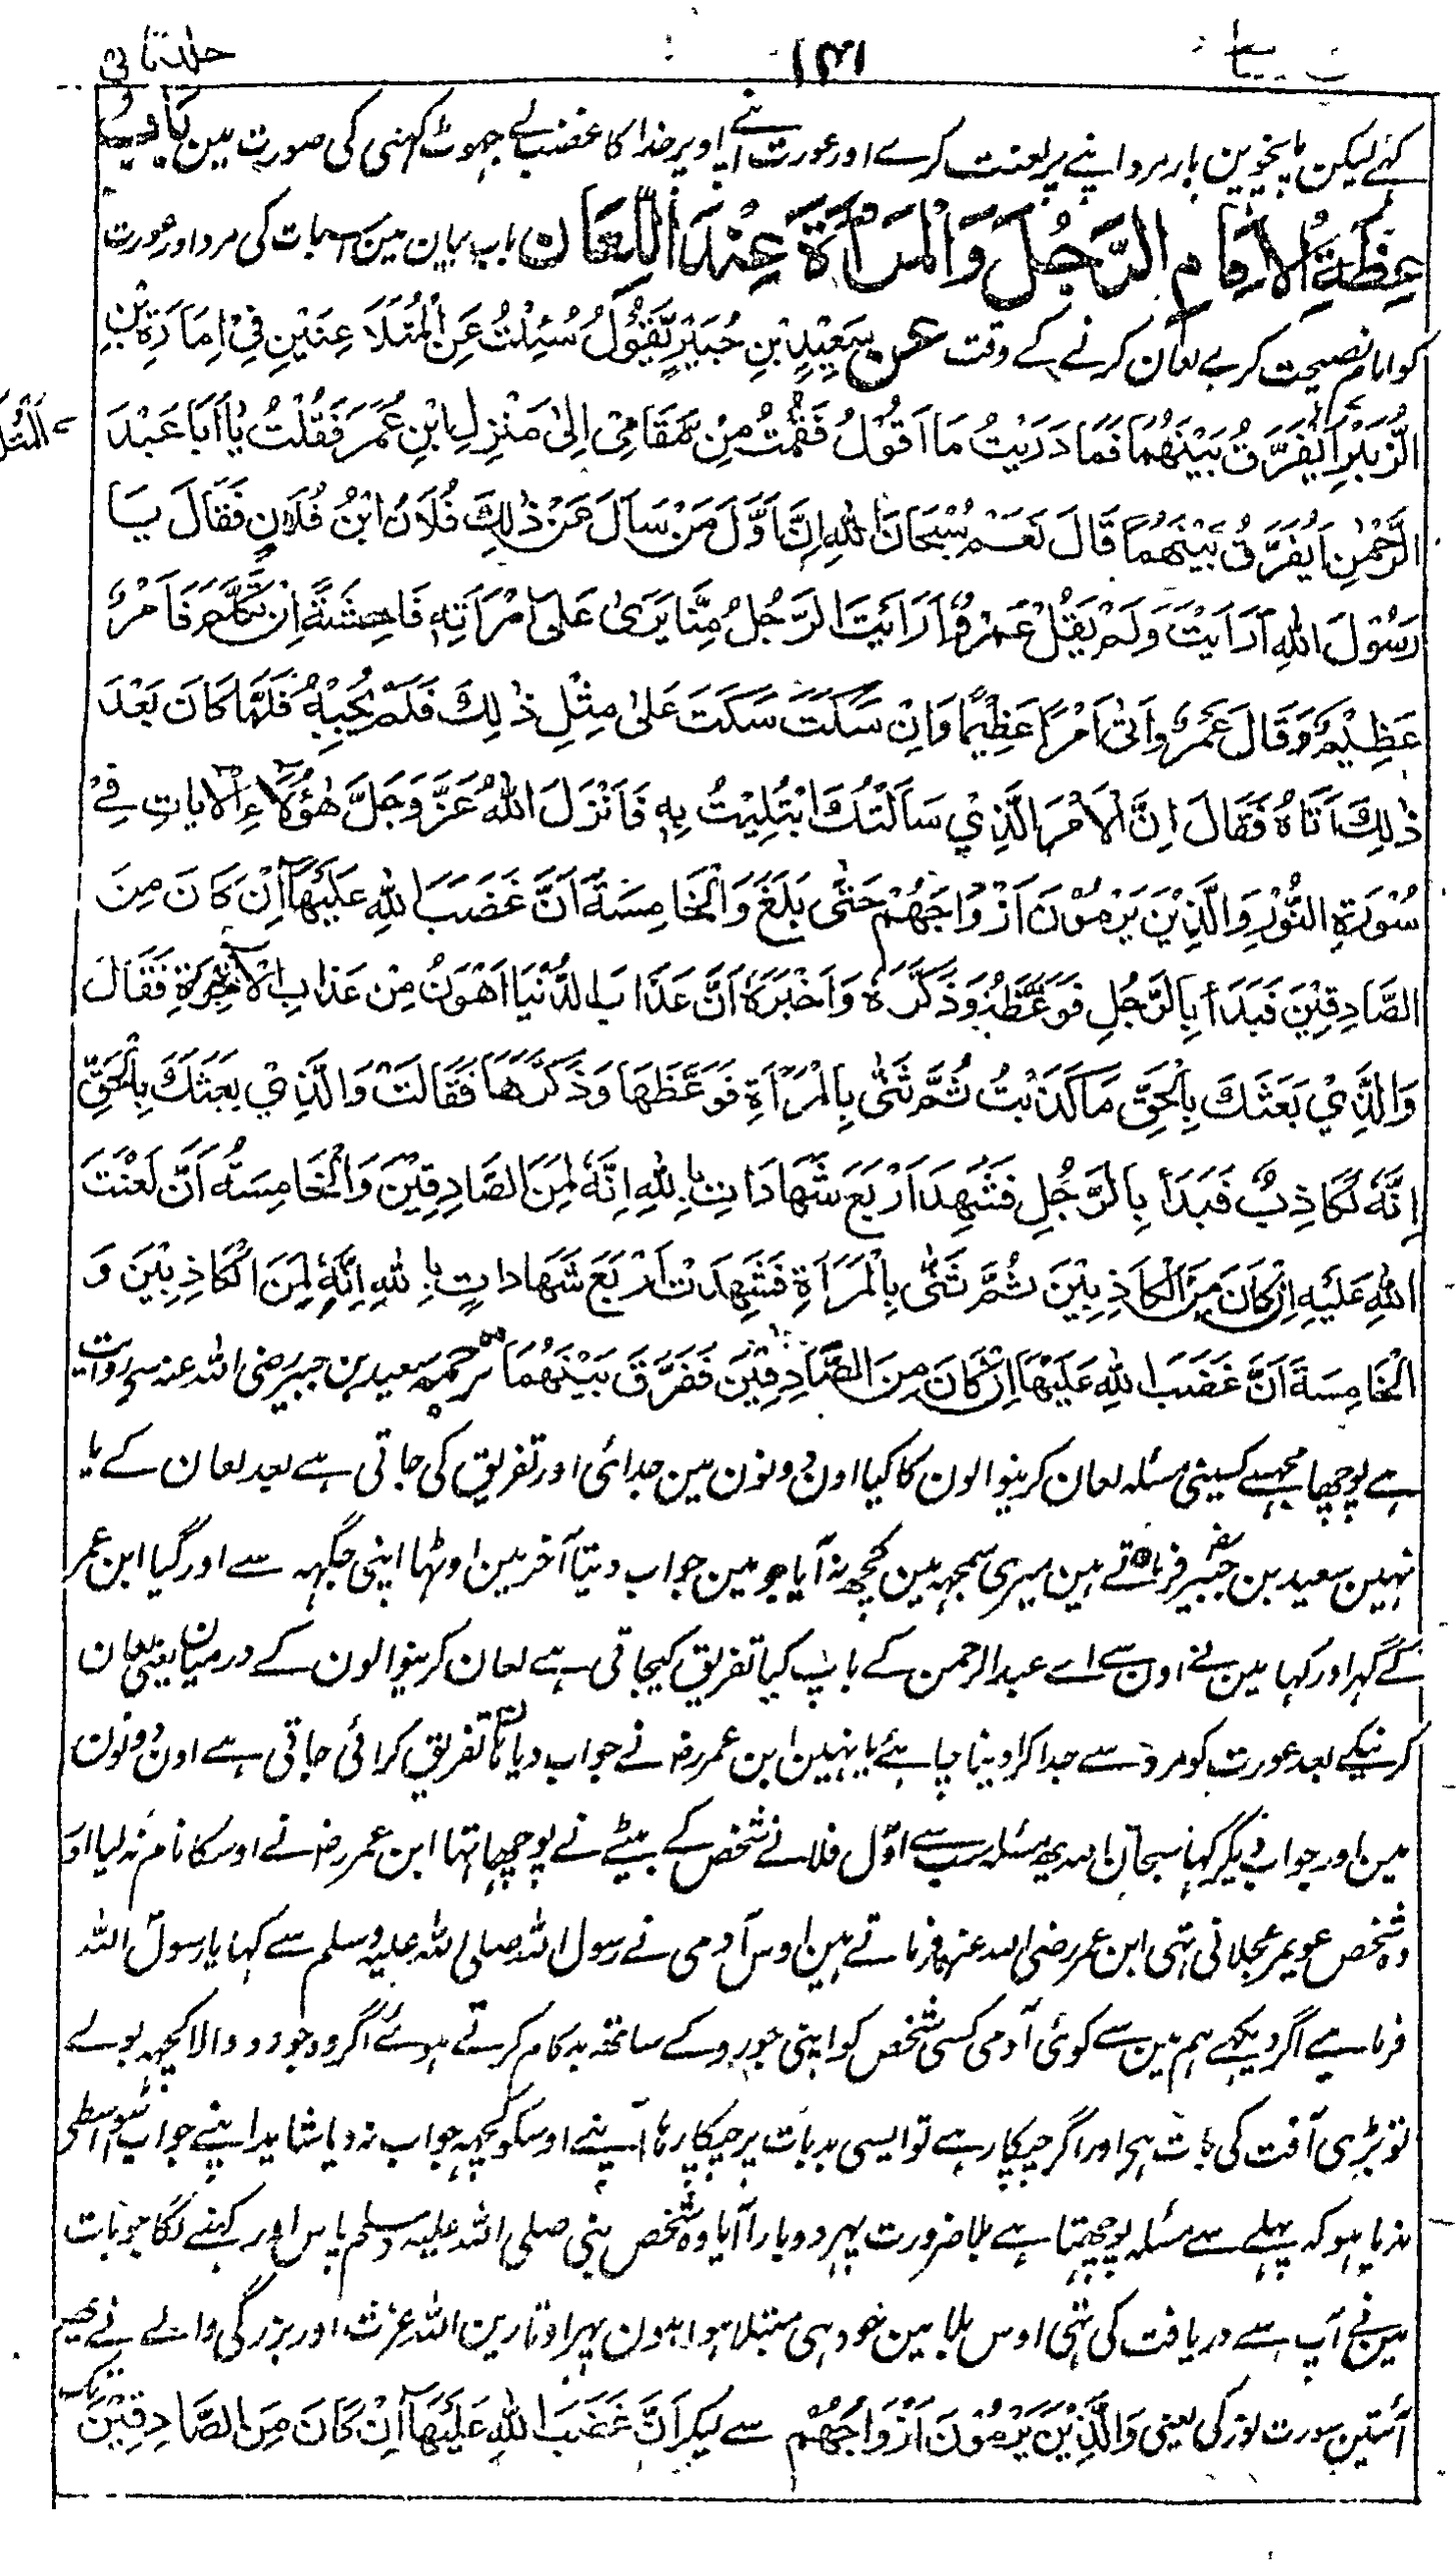 جلد ثانی
۱۳۱
کہے لیکن پانچوین بار مرد اپنے پر لعنت کرے اور عورت اپنے اوپر خدا کا غضب لے جہوٹ کہنی کی صورت مین بَابُ
عِظَةِ الْاِمَامِ الرَّجُلَ وَالْمَرْاَةَ عِنْدَ اللِّعَانِ باب بیان مین اسبات کی مرد اور عورت
کو امام نصیحت کرے لعان کرنے کے وقت عن سَعِيْدِ بْنِ جُبَيْرٍ يَّقُوْلُ سُئِلْتُ عَنِ الْمُتَلَاعِنَيْنِ فِيْ اِمَارَةِ بْنِ
الزُّبَيْرِ اَيُفَرَّقُ بَيْنَهُمَا فَمَا دَرَيْتُ مَا اَقُوْلُ فَقُمْتُ مِنْ مَّقَامِيْ اِلٰى مَنْزِلِ ابْنِ عُمَرَ فَقُلْتُ يَا اَبَا عَبْدَ
الرَّحْمٰنِ اَيُفَرَّقُ بَيْنَهُمَا قَالَ نَعَمْ سُبْحَانَ اللهِ اِنَّ اَوَّلَ مَنْ سَاَلَ عَنْ ذٰلِكَ فُلَانُ ابْنُ فُلَانٍ فَقَالَ يَا
رَسُوْلَ اللهِ اَرَاَيْتَ وَلَمْ يَقُلْ عَمْرٌو اَرَاَيْتَ الرَّجُلُ مِنَّا يَرٰى عَلَى امْرَاَتِهٖ فَاحِشَةً اِنْ تَكَلَّمَ فَاَمْرٌ
عَظِيْمٌ وَقَالَ عَمْرٌو اَتٰى اَمْرًا عَظِيْمًا وَاِنْ سَكَتَ سَكَتَ عَلٰى مِثْلِ ذٰلِكَ فَلَمْ يُجِبْهُ فَلَمَّا كَانَ بَعْدَ
ذٰلِكَ اَتَاهُ فَقَالَ اِنَّ الْاَمْرَ الَّذِيْ سَاَلْتُكَ ابْتُلِيْتُ بِهٖ فَاَنْزَلَ اللهُ عَزَّ وَجَلَّ هٰؤُلَاءِ الْاٰيَاتِ فِيْ
سُوْرَةِ النُّوْرِ وَالَّذِيْنَ يَرْمُوْنَ اَزْوَاجَهُمْ حَتّٰى بَلَغَ وَالْخَامِسَةَ اَنَّ غَضَبَ اللهِ عَلَيْهَا اِنْ كَانَ مِنَ
الصَّادِقِيْنَ فَبَدَاَ بِالرَّجُلِ فَوَعَظَهٗ وَذَكَّرَهٗ وَاَخْبَرَهٗ اَنَّ عَذَابَ الدُّنْيَا اَهْوَنُ مِنْ عَذَابِ الْاٰخِرَةِ فَقَالَ
وَالَّذِيْ بَعَثَكَ بِالْحَقِّ مَا كَذَبْتُ ثُمَّ ثَنّٰى بِالْمَرْاَةِ فَوَعَظَهَا وَذَكَّرَهَا فَقَالَتْ وَالَّذِيْ بَعَثَكَ بِالْحَقِّ
اِنَّهٗ لَكَاذِبٌ فَبَدَاَ بِالرَّجُلِ فَشَهِدَ اَرْبَعَ شَهَادَاتٍ بِاللهِ اِنَّهٗ لَمِنَ الصَّادِقِيْنَ وَالْخَامِسَةُ اَنَّ لَعْنَتَ
اللهِ عَلَيْهِ اِنْ كَانَ مِنَ الْكَاذِبِيْنَ ثُمَّ ثَنّٰى بِالْمَرْاَةِ فَشَهِدَتْ اَرْبَعَ شَهَادَاتٍ بِاللهِ اِنَّهٗ لَمِنَ الْكَاذِبِيْنَ وَ
الْخَامِسَةَ اَنَّ غَضَبَ اللهِ عَلَيْهَا اِنْ كَانَ مِنَ الصَّادِقِيْنَ فَفَرَّقَ بَيْنَهُمَا ترجمہ سعید بن جبیر رضی اللہ عنہ سے روایت
ہے پوچھا مجہسے کسینی مسئلہ لعان کرنیوالون کا کیا اون دونون مین جدائی اور تفریق کی جاتی ہے بعد لعان کے یا
نہین سعید بن جبیر فرماتے ہین میری سمجہہ مین کچھ نہ آیا جو مین جواب دیتا آخر مین اوٹہا اپنی جگہہ سے اور گیا ابن عمر
کے گہر اور کہا مین نے اون سے اے عبدالرحمن کے باپ کیا تفریق کیجاتی ہے لعان کرنیوالون کے درمیان یعنی لعان
کرنیکے بعد عورت کو مرد سے جدا کرا دینا چاہئے یا نہین ابن عمر رض نے جواب دیا ہان تفریق کرائی جاتی ہے اون دونون
مین اور جواب دیکر کہا سبحان اللہ یہ مسئلہ سب سے اوّل فلانے شخص کے بیٹے نے پوچھا تہا ابن عمر رض نے اوسکا نام نہ لیا اور
وہ شخص عویمر عجلانی تہی ابن عمر رضی اللہ عنہما فرماتے ہین اوس آدمی نے رسول اللہ صلی اللہ علیہ وسلم سے کہا یا رسول اللہ
فرمایے اگر دیکہے ہم مین سے کوئی آدمی کسی شخص کو اپنی جورو کے ساتھ بدکام کرتے ہوئے اگر وہ جورو والا کچہہ بولے
تو بڑی آفت کی بات ہی اور اگر چپکا رہے تو ایسی بدبات پر چپکا رہا آپنے اوسکو کچہہ جواب نہ دیا شاید اپنے جواب اسواسطی
ندیا ہو کہ پہلے سے مسئلہ پوچھتا ہے بلا ضرورت پہر دوبارا آیا وہ شخص نبی صلی اللہ علیہ وسلم پاس اور کہنے لگا جو بات
مین نے آپ سے دریافت کی تہی اوس بلا مین خود ہی مبتلا ہوا ہون پہر اوتارین اللہ عزت اور بزرگی والے نے یہ
آئتین سورت نور کی یعنی وَالَّذِيْنَ يَرْمُوْنَ اَزْوَاجَهُمْ سے لیکر اَنَّ غَضَبَ اللهِ عَلَيْهَا اِنْ كَانَ مِنَ الصَّادِقِيْنَ تک